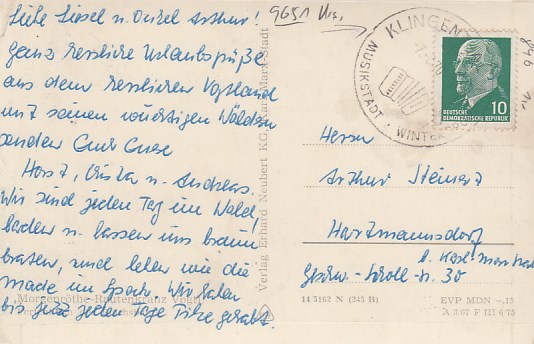 Liebe Liesel u. Onkel Arthur!
Ganz herzliche Urlaubsgrüße
aus dem herrlichen Vogtland
mit seinen würzigen Wäldern
senden Euch Eure
Horst, Christa u. Andreas.
Wir sind jeden Tag im Wald
baden u. lassen uns braun
braten, und leben wie die
Made im Speck. Wir haben
bis jetzt jeden Tag Pilze gehabt.
Morgenröthe-Rautenkranz Vogtl.
Verlag Erhard Neubert KG, Karl-Marx-Stadt
9651
KLINGEN
MUSIKSTADT · WINTER
10
DEUTSCHE
DEMOKRATISCHE REPUBLIK
Herrn
Arthur Steinert
Hartmannsdorf
b. Karl-Marx-Stadt
Geschw.-Scholl-Str. 30
14 5162 N (245 B)
EVP MDN –,15
A 3/67 F III 6/75